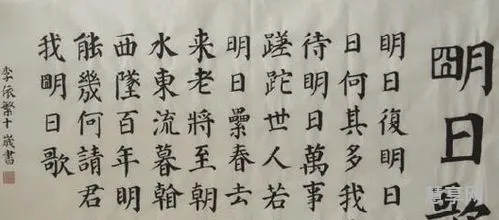 明日歌
明日復明日
日何其多我
待明日萬事
蹉跎世人若
明日纍春去
来老將至朝
水東流暮翰
西墜百年明
能幾何請君
我明日歌
李依繁十歲書